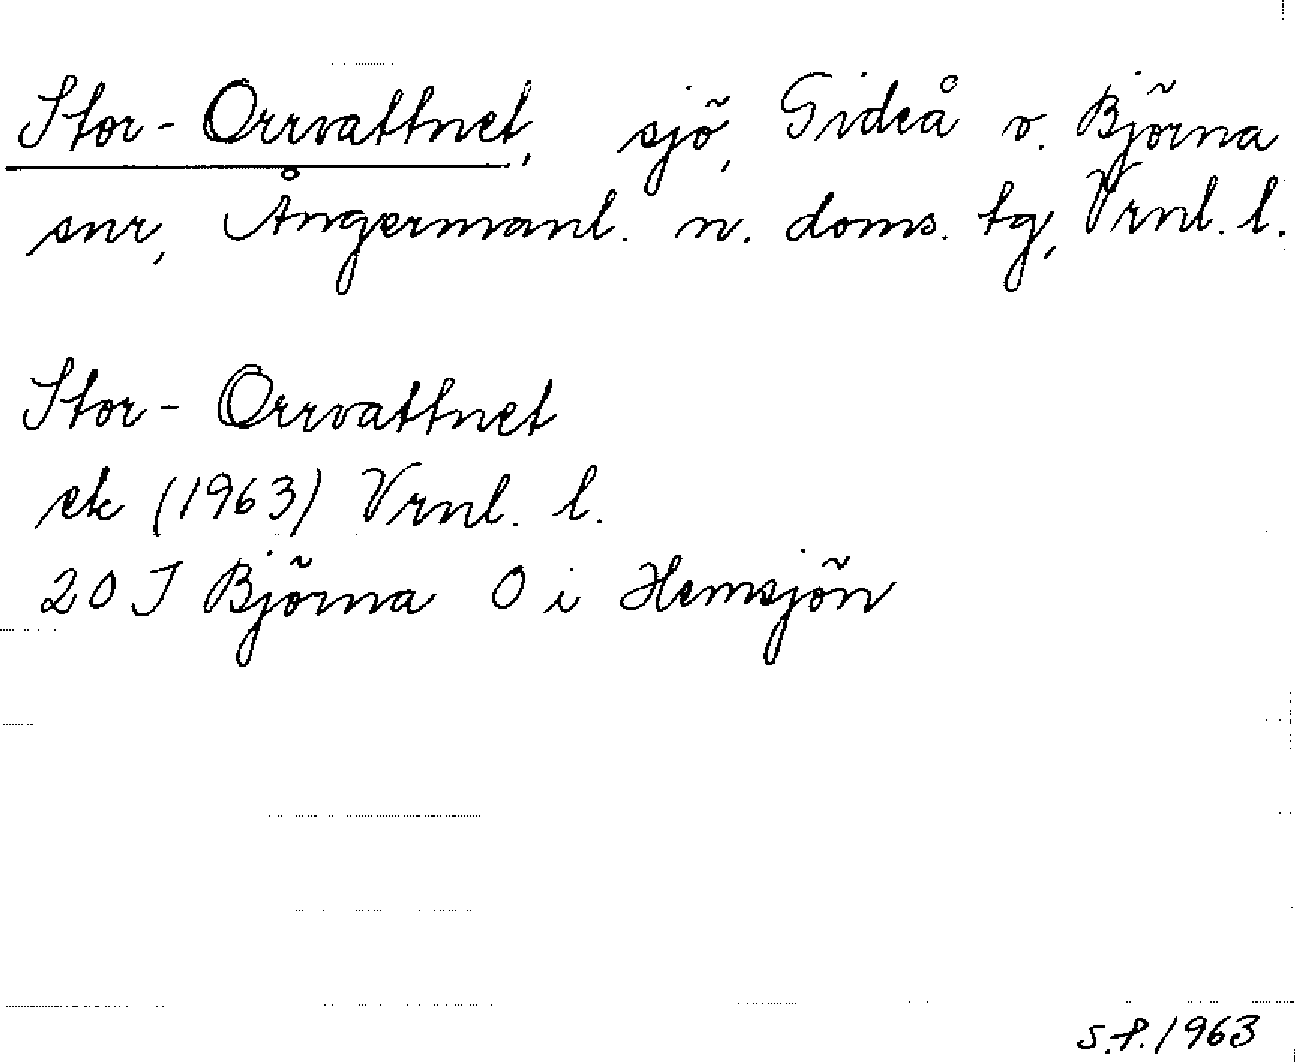 Stor-Orrvattnet, sjö, Gideå o. Björna
snr, Ångermanl. n. doms. tg, Vrnl. l.
Stor-Orrvattnet
ek (1963) Vrnl. l.
20 J Björna O i Hemsjön
S.f. 1963